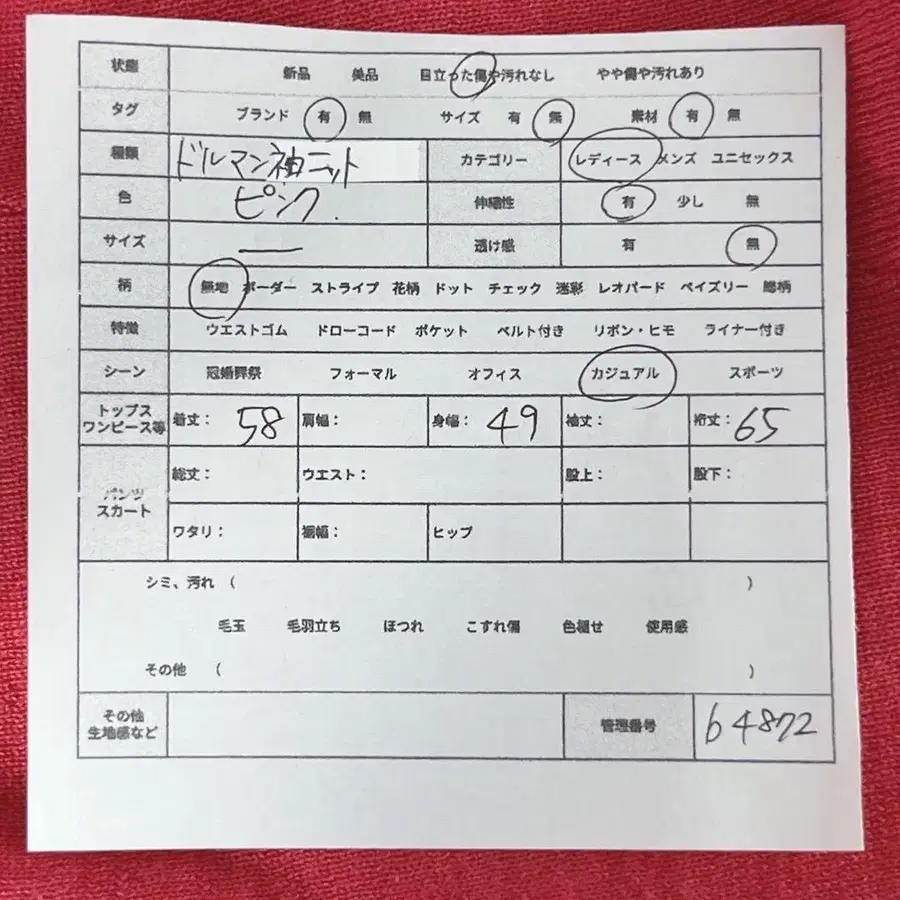 状態 新品 美品 目立った傷や汚れなし やや傷や汚れあり
タグ ブランド 有 無 サイズ 有 無 素材 有 無
種類 ドルマン袖ニット カテゴリー レディース メンズ ユニセックス
色 ピンク. 伸縮性 有 少し 無
サイズ ー 透け感 有 無
柄 無地 ボーダー ストライプ 花柄 ドット チェック 迷彩 レオパード ペイズリー 総柄
特徴 ウエストゴム ドローコード ポケット ベルト付き リボン・ヒモ ライナー付き
シーン 冠婚葬祭 フォーマル オフィス カジュアル スポーツ
トップス
ワンピース等 着丈: 58 肩幅: 身幅: 49 袖丈: 裄丈: 65
パンツ
スカート 総丈: ウエスト: 股上: 股下:
ワタリ: 裾幅: ヒップ
シミ、汚れ ( )
毛玉 毛羽立ち ほつれ こすれ傷 色褪せ 使用感
その他 ( )
その他
生地感など 管理番号 64872